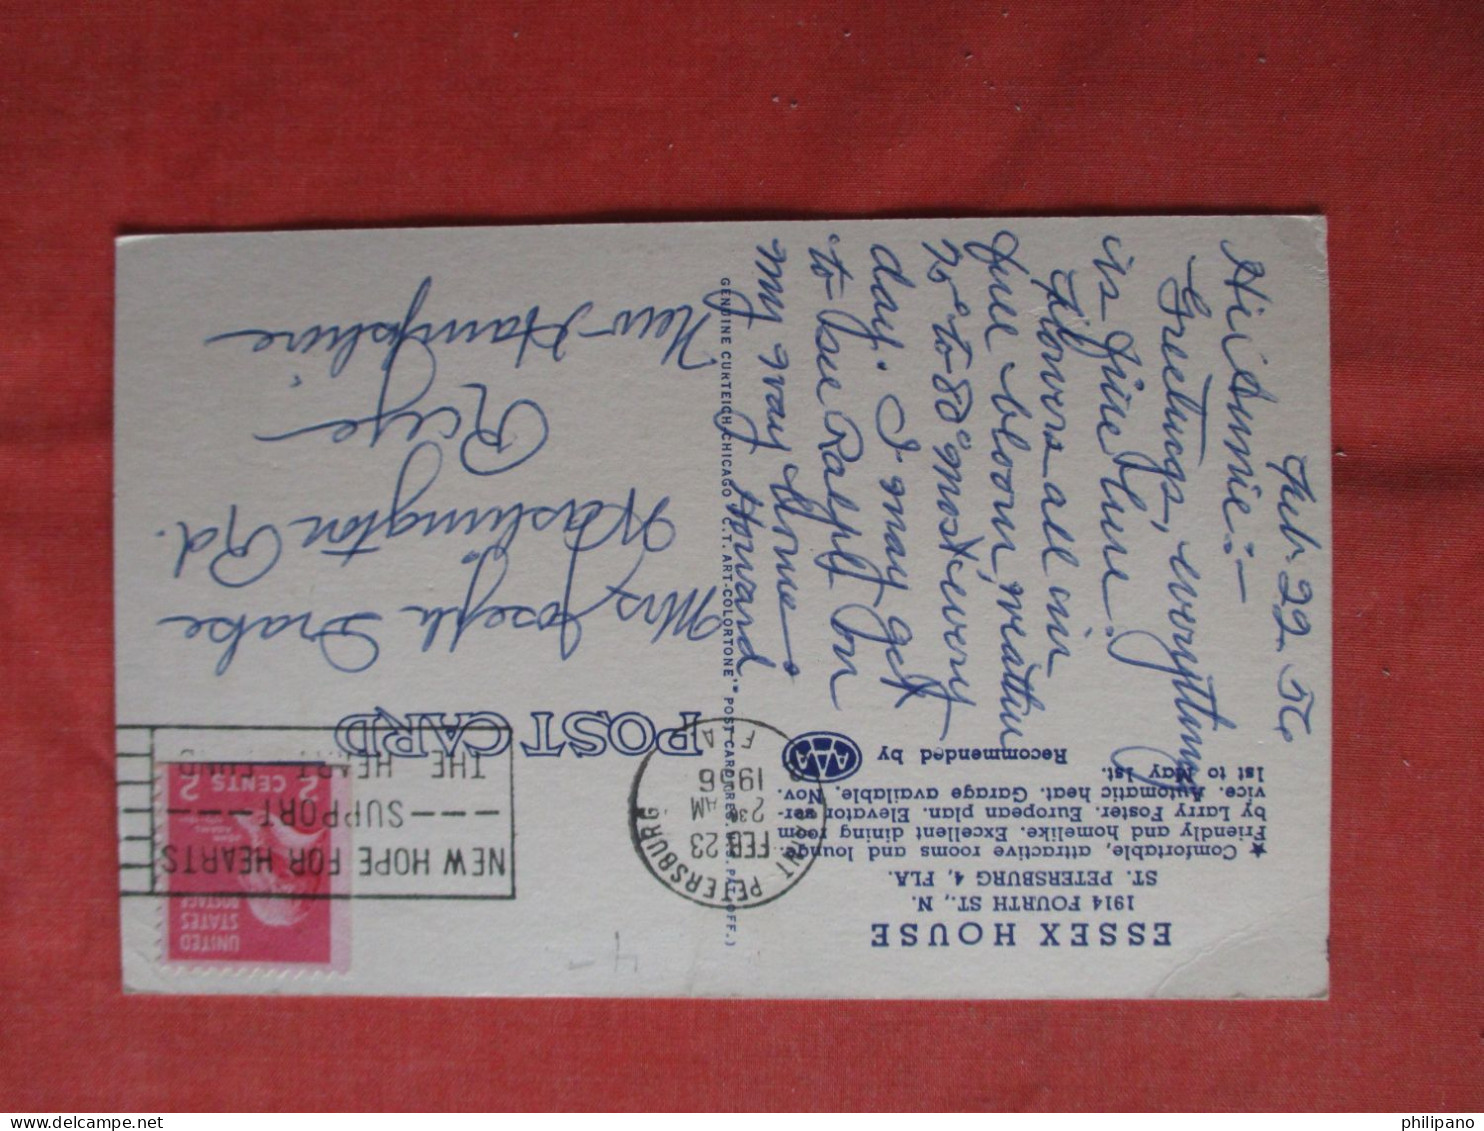 ESSEX HOUSE
1914 FOURTH ST., N.
ST. PETERSBURG 4, FLA.
★ Comfortable, attractive rooms and lounge.
Friendly and homelike. Excellent dining room
by Larry Foster. European plan. Elevator ser-
vice. Automatic heat. Garage available. Nov.
1st to May 1st.
Recommended by
AAA
Feb. 22 56
Hi Annie:-
Greetings, everything
is fine here.
Flowers all in
full bloom, weather
75° to 80° most every
day. I may get
to see Ralph on
my way home.
Howard
GENUINE CURTEICH-CHICAGO "C.T. ART-COLORTONE" POST CARD (REG. U.S. PAT. OFF.)
POST CARD
SAINT PETERSBURG
FEB 23
2 30 AM
1956
FLA
NEW HOPE FOR HEARTS
---SUPPORT---
THE HEART FUND
UNITED
STATES
POSTAGE
2 CENTS 2
4-
Mrs Joseph Drake
Washington Rd.
Rye
New Hampshire
philipano